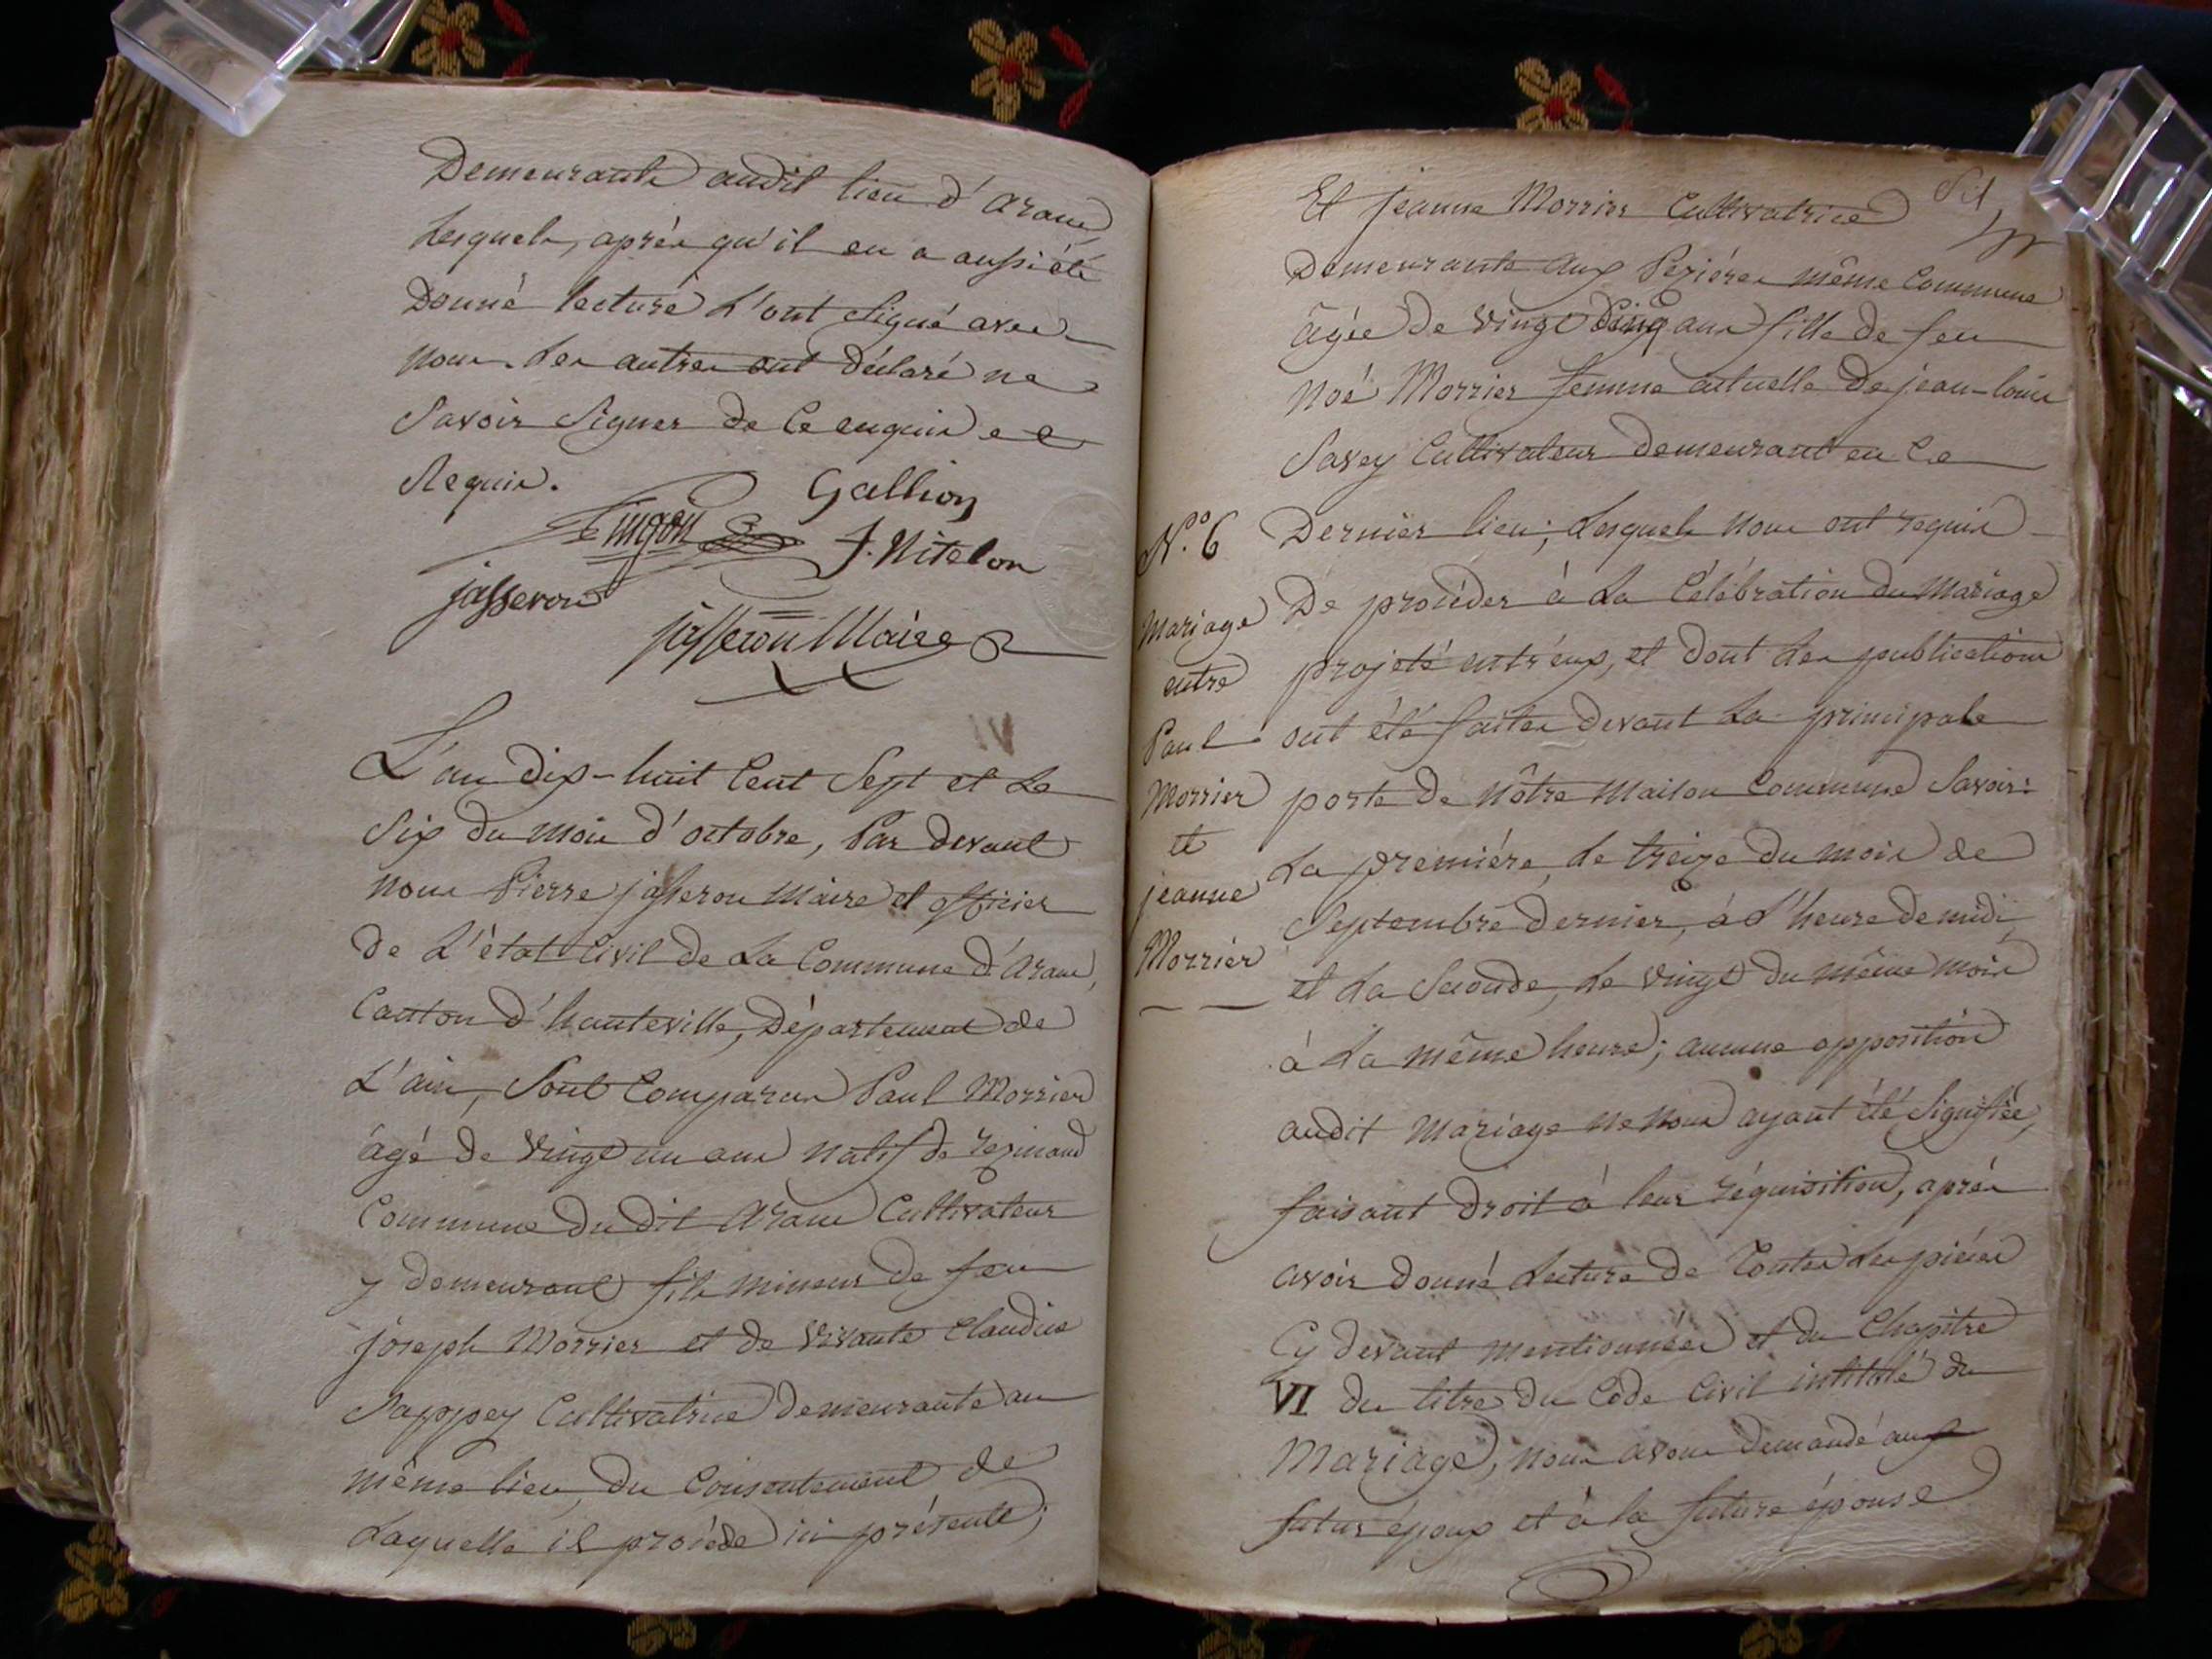 Demeurants audit lieu d'Aranc
Lesquels, après qu'il en a aussi été
Donné lecture L'ont Signé avec
nous. Les autres ont Déclaré ne
Savoir Signer de ce enquis et
Requis.
Gallion
J. Nitelon
jasseron
jasseron Maire
L'an dix-huit Cent Sept et Le
Six du mois d'octobre, Par devant
nous Pierre jasseron Maire et officier
de L'état Civil de La Commune d'Aranc,
Canton d'hauteville, Département de
L'ain, Sont Comparus Paul Morrier
âgé de Vingt un ans natif de Resinand
Commune du dit Aranc Cultivateur
y demeurant fils mineur de feu
joseph Morrier et de vivante Claudine
Sappey Cultivatrice demeurante au
même lieu, du Consentement de
Laquelle il procède ici présente;
Et jeanne Morrier Cultivatrice
Demeurante aux Pézières même Commune
âgée de vingt Cinq ans fille de feu
Noé Morrier femme actuelle de jean-louis
Savey Cultivateur Demeurant en Ce
N.° 6
Mariage
entre
Paul
Morrier
et
jeanne
Morrier
Dernier lieu; Lesquels nous ont requis
De procéder à La Célébration du Mariage
projeté entr'eux, et dont Les publications
ont été faites devant La principale
porte de nôtre Maison Commune Savoir:
La première, Le treize du mois de
Septembre dernier, à L'heure de midi,
et La Seconde, Le vingt du même mois
à La même heure; aucune opposition
audit Mariage ne nous ayant été Signifiée,
faisant Droit à leur réquisition, après
avoir donné Lecture de Toutes Les pièces
Cy devant mentionnées et du Chapitre
VI du titre du Code Civil intitulé du
Mariage, nous avons Demandé au
futur époux et à la future épouse